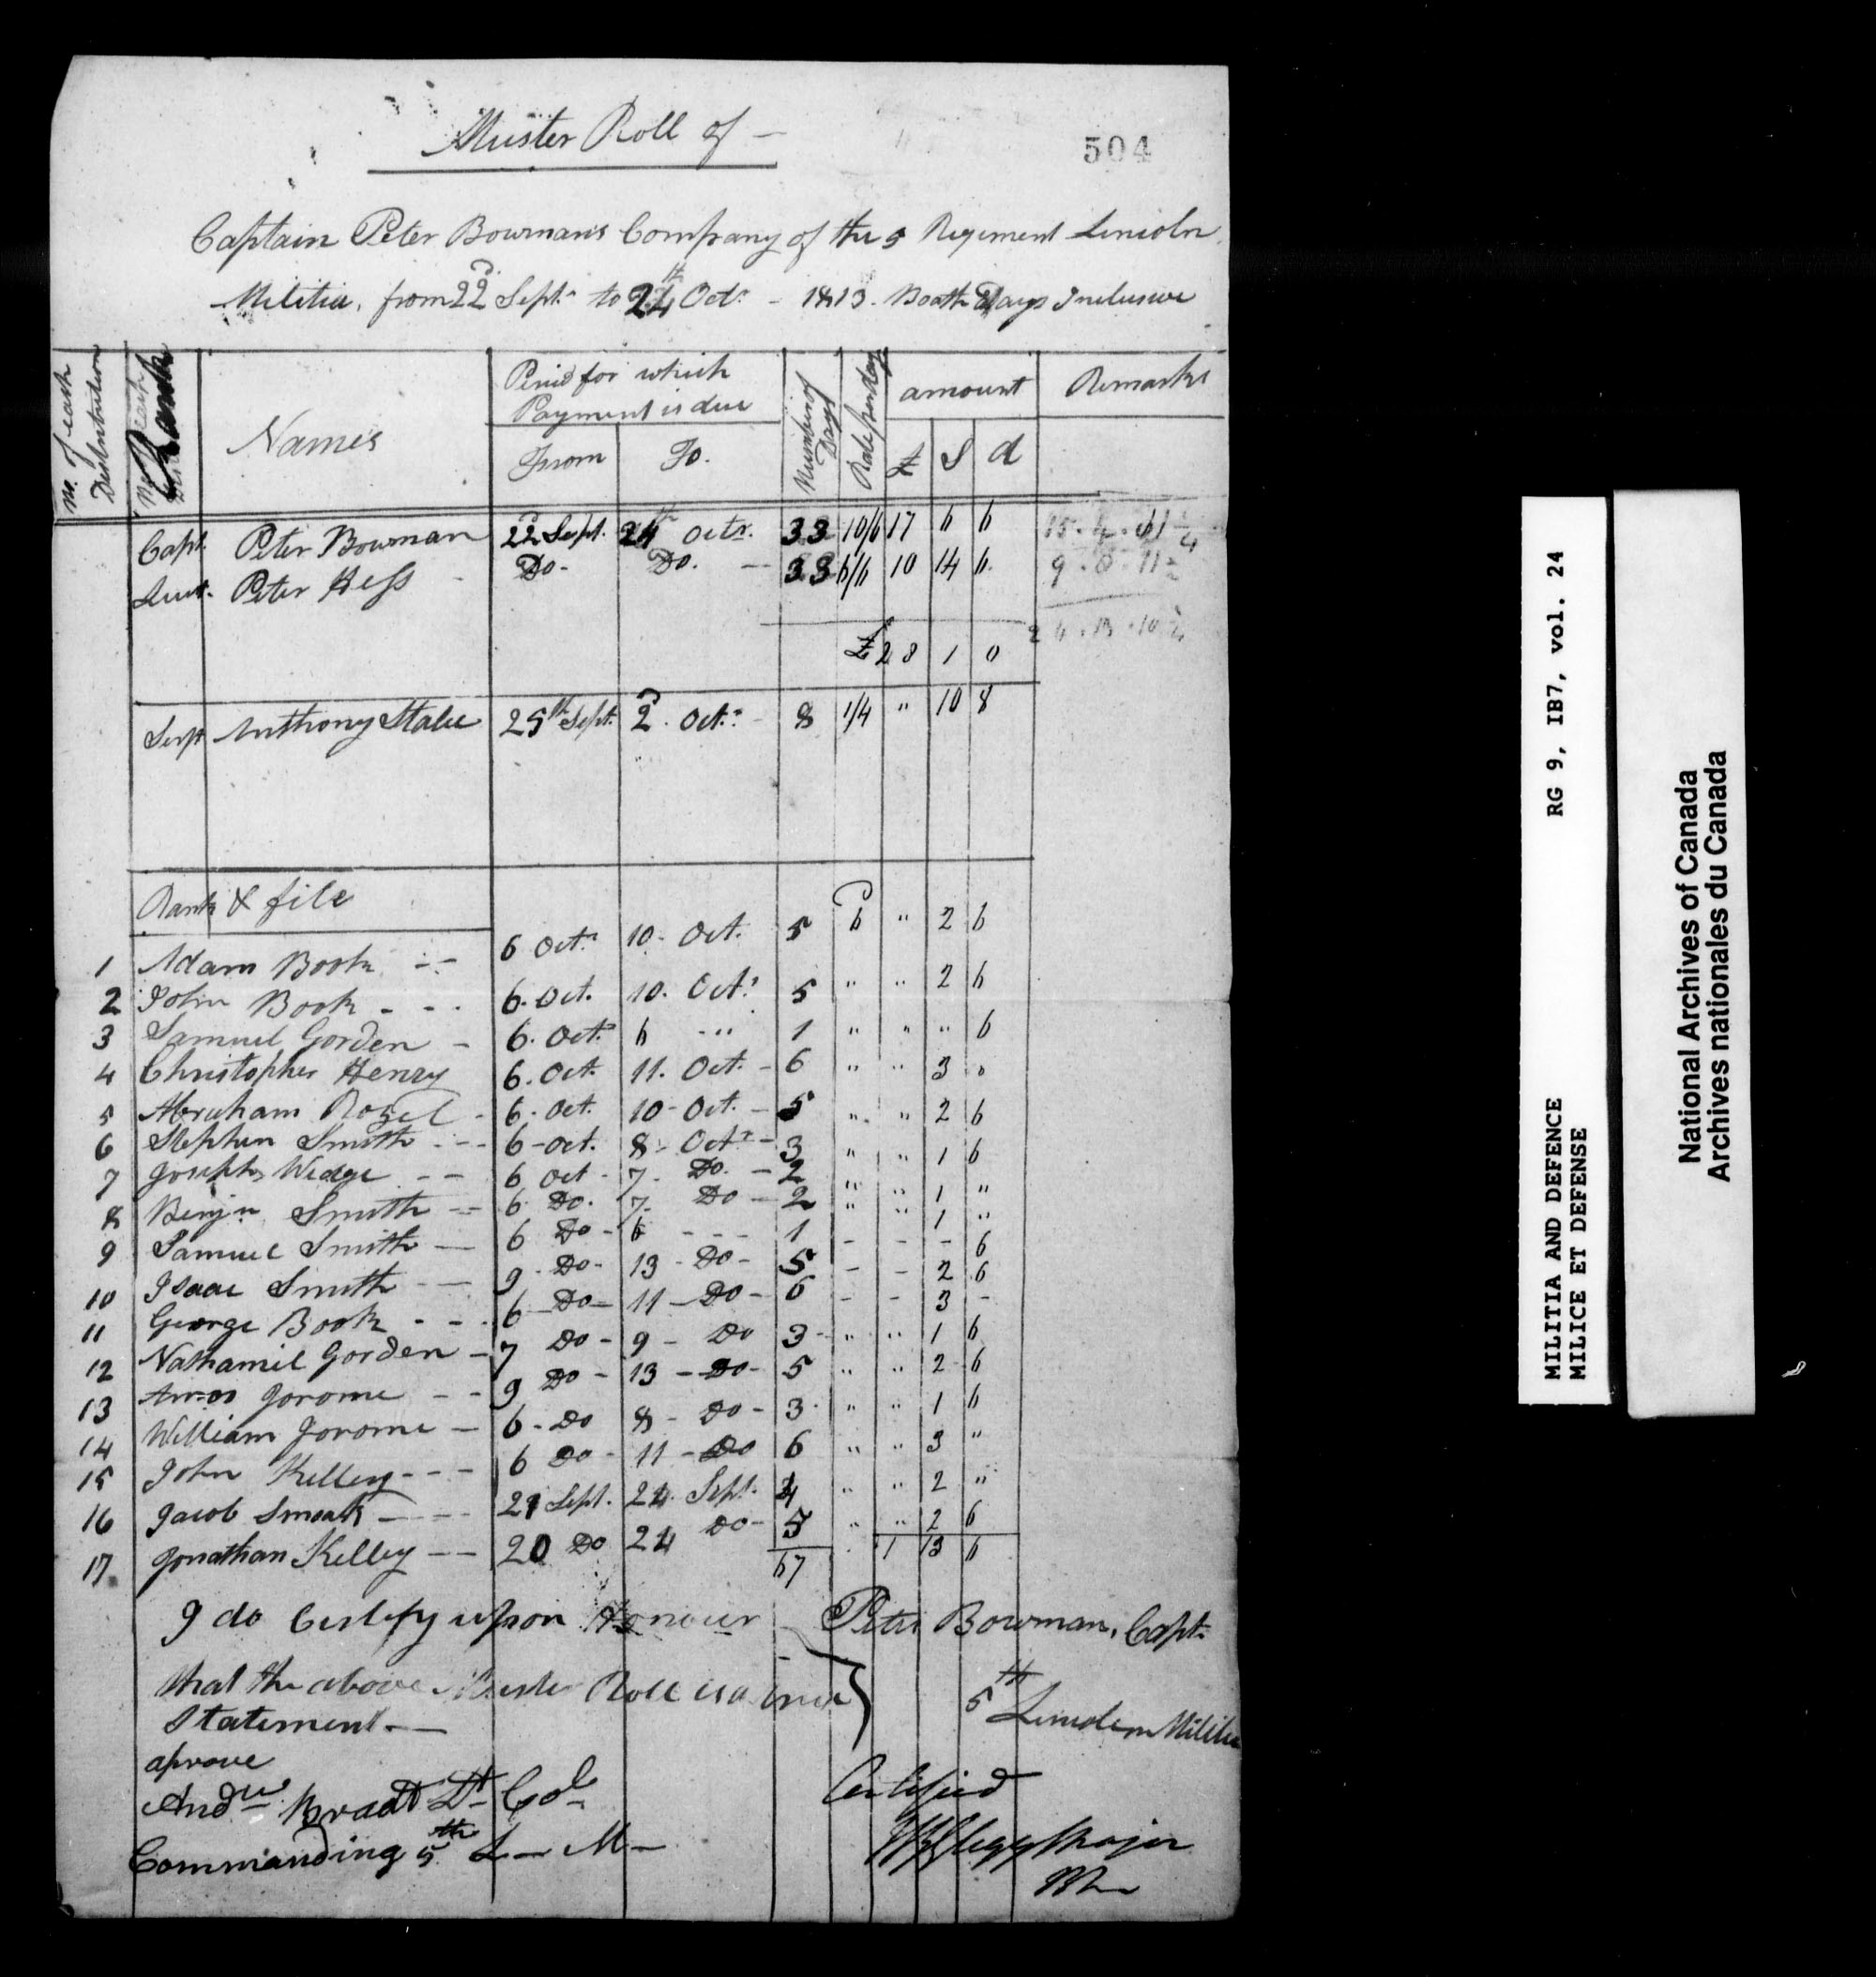 Muster Roll of —
504
Captain Peter Bowman's Company of the 5 Regiment Lincoln
Militia, from 22d Sept. to 24th Oct. - 1813. Booth Days Inclusive
No. of each Distribution
Rank
Names
Period for which Payment is due
From
To.
Number of Days
Rate per day
amount
£ S d
Remarks
Capt. Peter Bowman 22d Sept. 24th Octr. 33 10/6 17 6 6
Lieut. Peter Hess - Do - Do. - 33 6/6 10 14 6.
£28 1 0
Serjt Anthony 25th Sept. 2d. Oct. - 8 1/4 " 10 8
Rank & file
1 Adam Book - - 6 Oct. 10 - Oct. 5 6d " 2 6
2 John Book - - - 6. Oct. 10. Oct. 5 " " 2 6
3 Samuel Gorden - 6. Oct. 6 - " 1 " " " 6
4 Christopher Henry 6. Oct. 11. Oct. - 6 " " 3 "
5 Abraham Rozel - 6 - Oct. 10 - Oct. - 5 " " 2 6
6 Stephen Smith - - - 6 - Oct. 8 - Oct. - 3 " " 1 6
7 Joseph Wedge - - 6 Oct - 7 - Do. - 2 " " 1 "
8 Benjn Smith - - 6 Do. 7 - Do - 2 " " 1 "
9 Samuel Smith — 6 Do - 6 - - - 1 - - - 6
10 Isaac Smith — 9 - Do - 13 - Do - 5 - - 2 6
11 George Book - - - 6 - Do - 11 - Do - 6 - - 3 -
12 Nathaniel Gorden - 7 Do - 9 - Do 3 - " " 1 6
13 Amos Jorome - - 9 Do - 13 - Do - 5 " " 2 6
14 William Jorome - 6 - Do 8 - Do - 3 - " " 1 6
15 John Kelley - - - 6 Do - 11 - Do 6 " " 3 "
16 Jacob Smoak - - - 21 Sept. 24. Sept. 4 " " 2 "
17 Jonathan Kelley - - 20 Do 24 Do - 5 " " 2 6
67 1 13 6
I do Certify upon Honour
that the above Muster Roll is a true
Statement. —
Peter Bowman, Capt.
5th Lincoln Militia
aprove
Andw Bradt Lt Col
Commanding 5th L — M —
Certified
Clegg Major
RG 9, IB7, vol. 24
MILITIA AND DEFENCE
MILICE ET DEFENSE
National Archives of Canada
Archives nationales du Canada